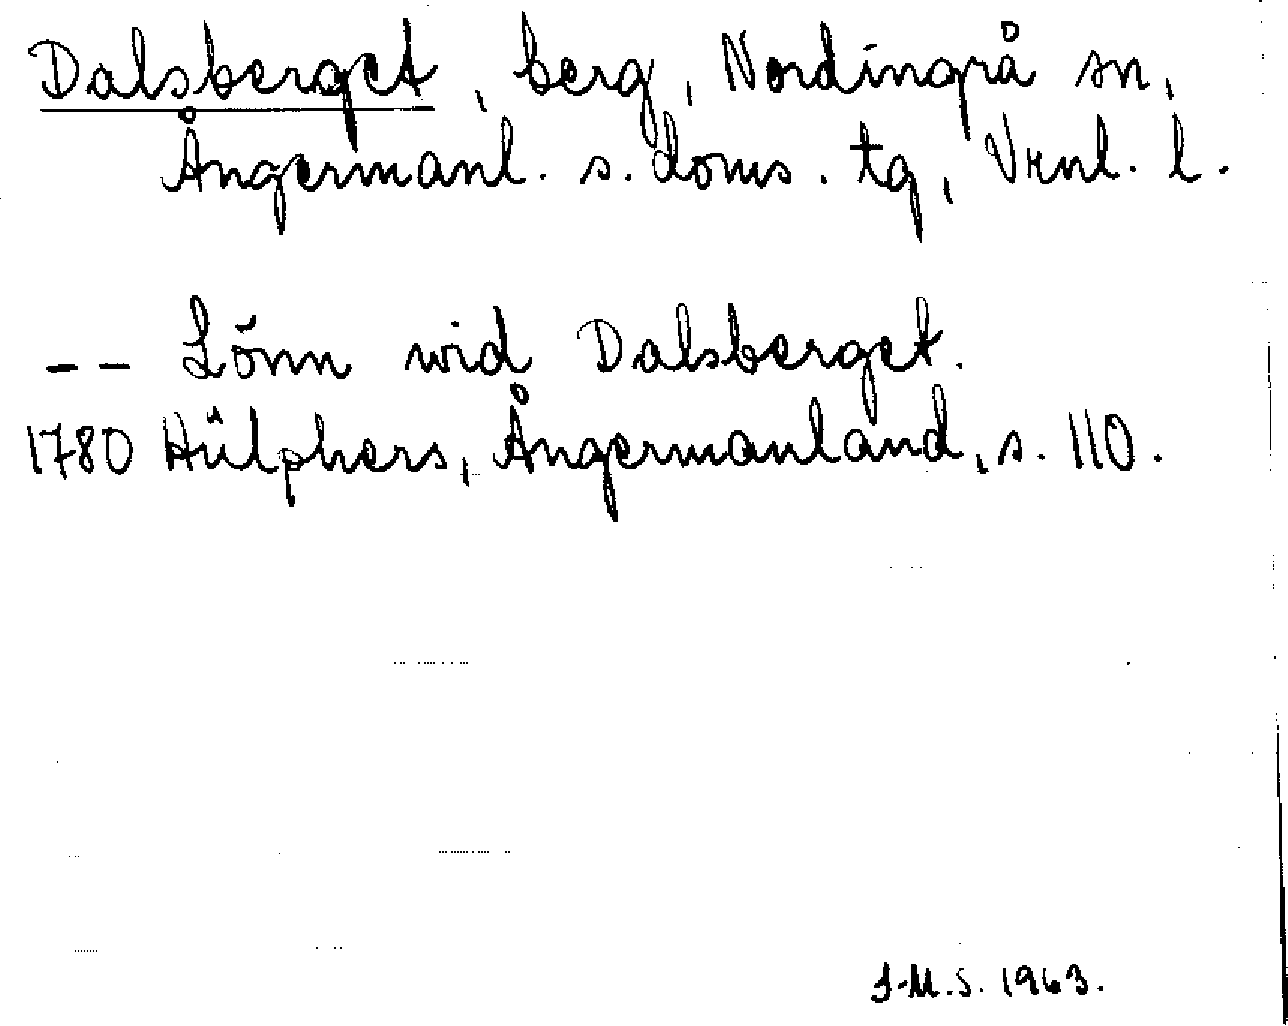 Dalsberget, berg, Nordingrå sn,
Ångermanl. s. doms. tg, Vrnl. l.
-- Lönn wid Dalsberget.
1780 Hülphers, Ångermanland, s. 110.
J.M.S. 1963.